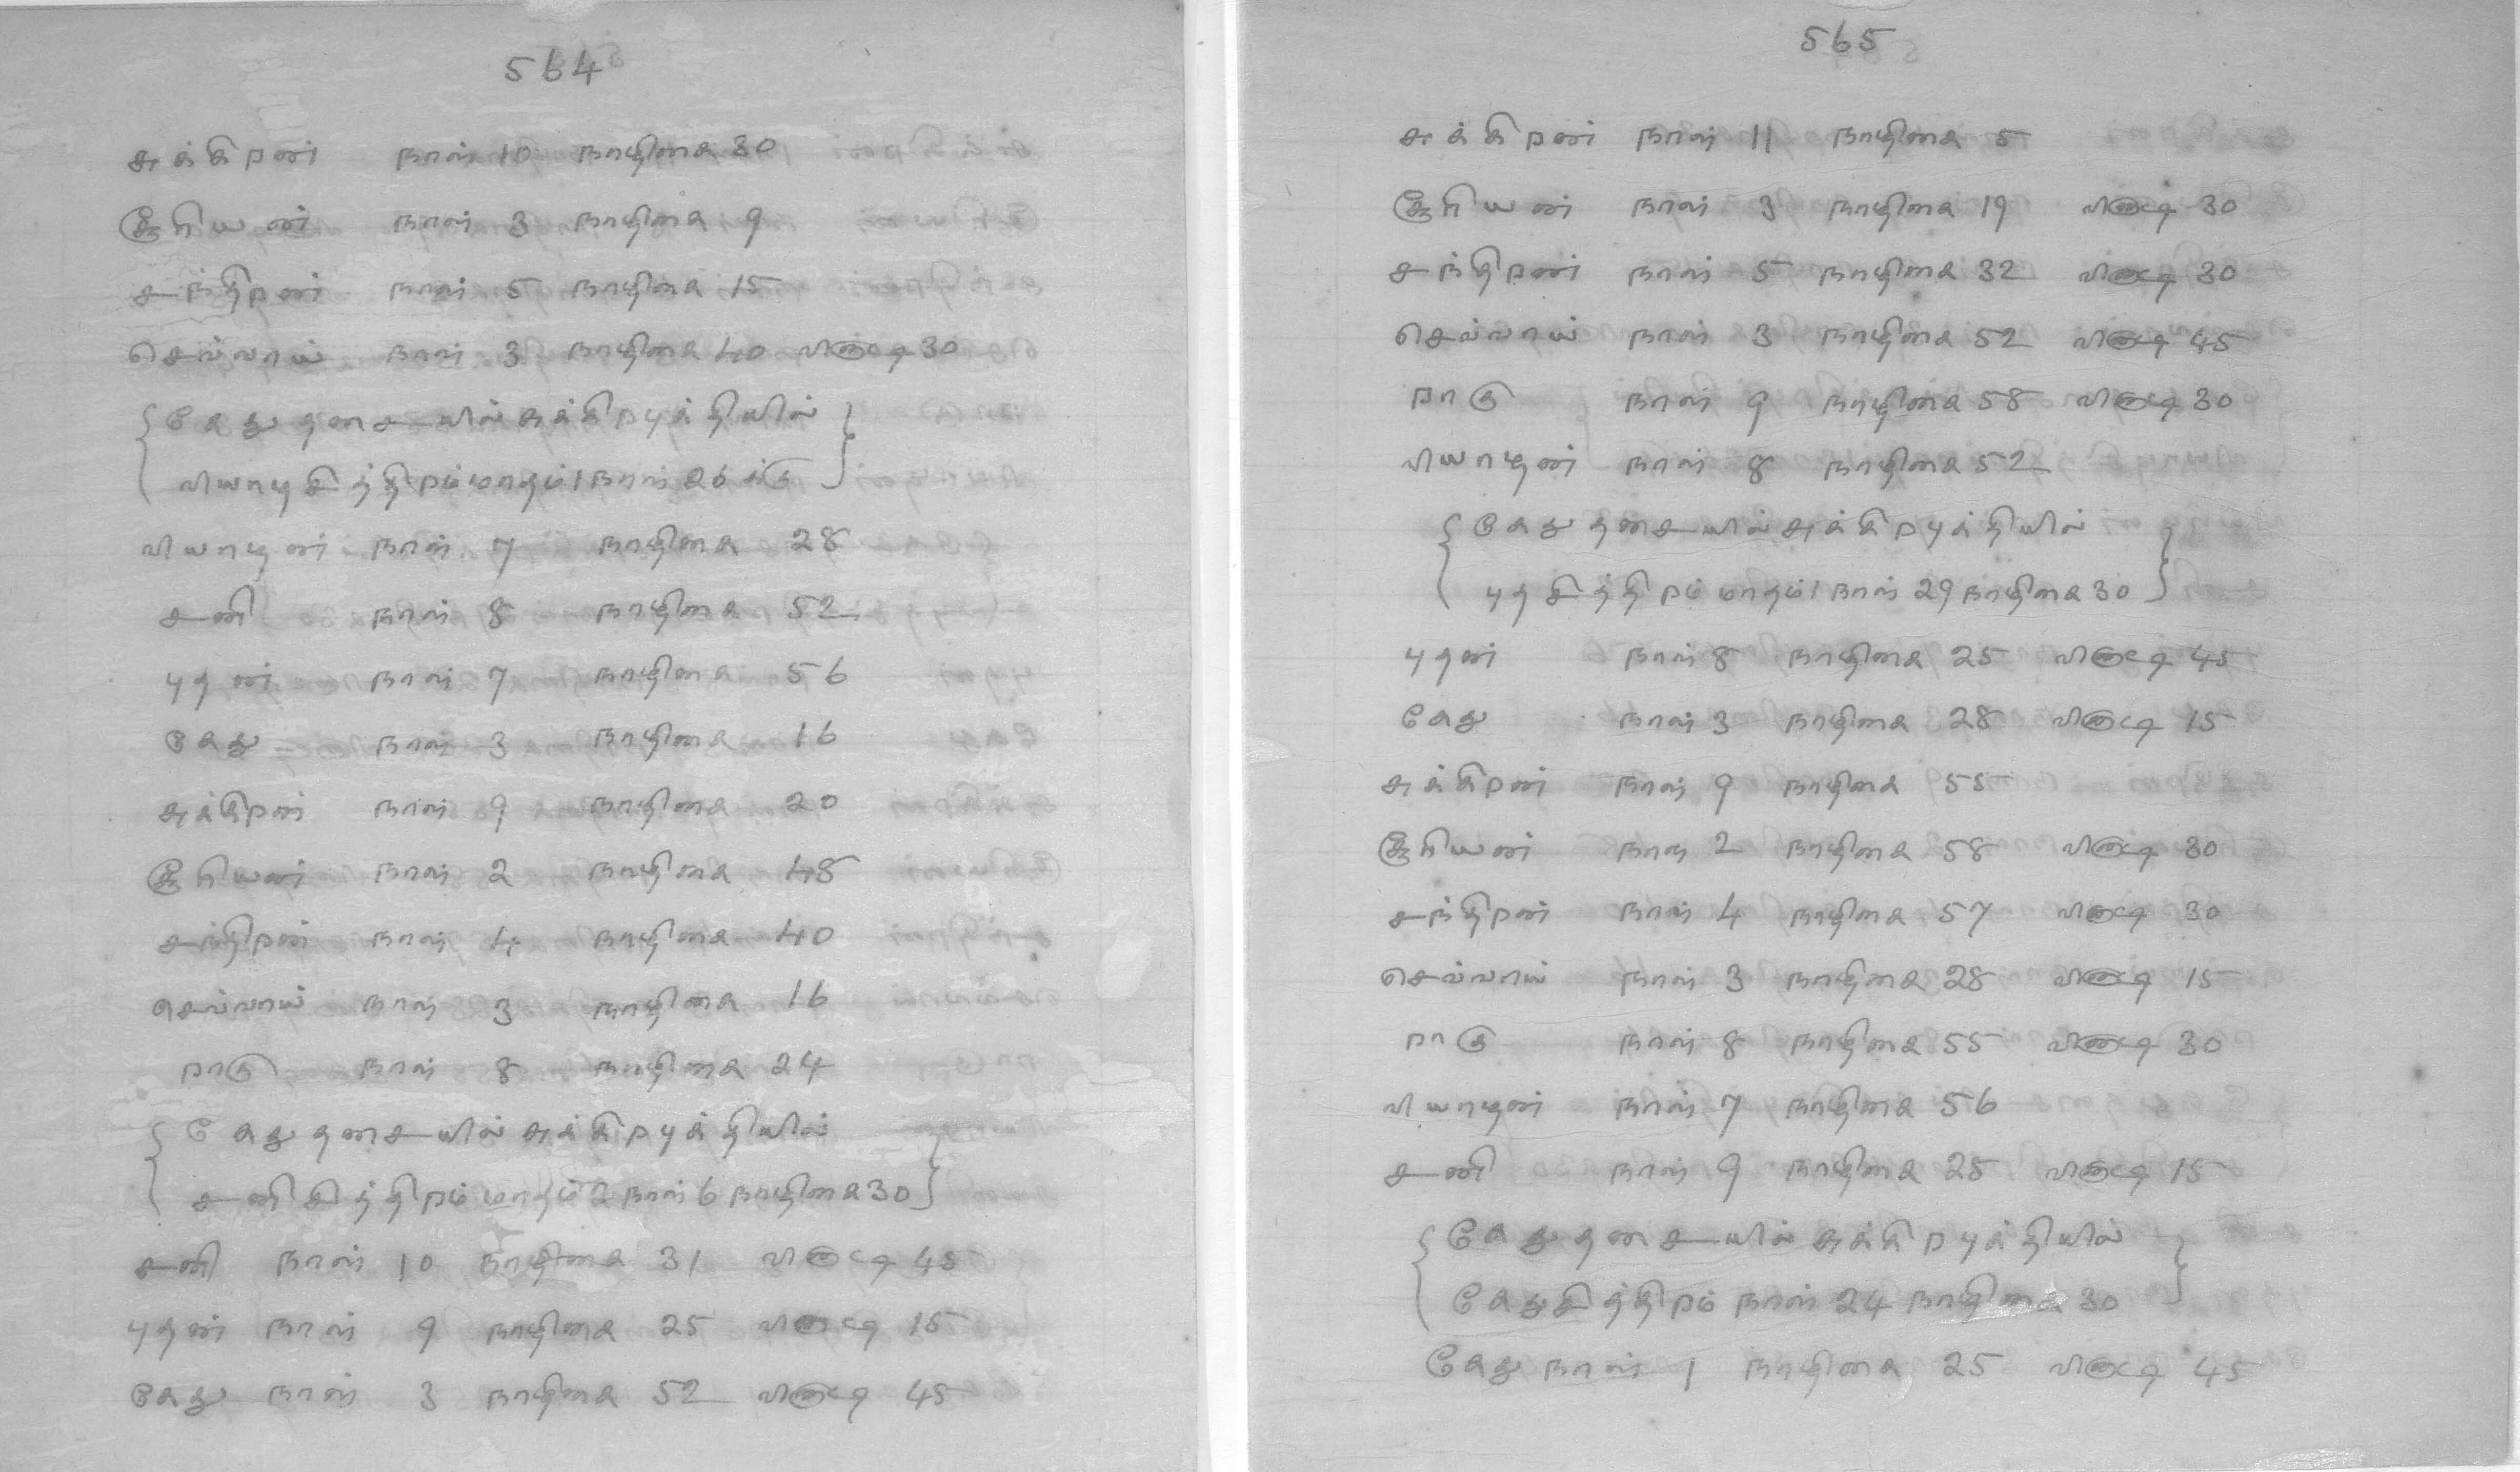 564
சுக்கிறன் நாள் 10 நாழிகை 30
சூரியன் நாள் 3 நாழிகை 9
சந்திறன் நாள் 5 நாழிகை 15
செவ்வாய் நாள் 3 நாழிகை 40 வினாடி 30
கேது தசையில் சுக்கிறபுக்தியில்
வியாழசித்திறம் மாதம் 1 நாள் 26 க்கு
வியாழன் நாள் 7 நாழிகை 28
சனி நாள் 8 நாழிகை 52
புதன் நாள் 7 நாழிகை 56
கேது நாள் 3 நாழிகை 16
சுக்கிறன் நாள் 9 நாழிகை 20
சூரியன் நாள் 2 நாழிகை 48
சந்திறன் நாள் 4 நாழிகை 40
செவ்வாய் நாள் 3 நாழிகை 16
றாகு நாள் 8 நாழிகை 24
கேது தசையில் சுக்கிறபுக்தியில்
சனிசித்திறம் மாதம் 2 நாள் 6 நாழிகை 30
சனி நாள் 10 நாழிகை 31 வினாடி 45
புதன் நாள் 9 நாழிகை 25 வினாடி 15
கேது நாள் 3 நாழிகை 52 வினாடி 45
565
சுக்கிறன் நாள் 11 நாழிகை 5
சூரியன் நாள் 3 நாழிகை 19 வினாடி 30
சந்திறன் நாள் 5 நாழிகை 32 வினாடி 30
செவ்வாய் நாள் 3 நாழிகை 52 வினாடி 45
றாகு நாள் 9 நாழிகை 58 வினாடி 30
வியாழன் நாள் 8 நாழிகை 52
கேது தசையில் சுக்கிறபுக்தியில்
புதசித்திறம் மாதம் 1 நாள் 29 நாழிகை 30
புதன் நாள் 8 நாழிகை 25 வினாடி 45
கேது நாள் 3 நாழிகை 28 வினாடி 15
சுக்கிறன் நாள் 9 நாழிகை 55
சூரியன் நாள் 2 நாழிகை 58 வினாடி 30
சந்திறன் நாள் 4 நாழிகை 57 வினாடி 30
செவ்வாய் நாள் 3 நாழிகை 28 வினாடி 15
றாகு நாள் 8 நாழிகை 55 வினாடி 30
வியாழன் நாள் 7 நாழிகை 56
சனி நாள் 9 நாழிகை 25 வினாடி 15
கேது தசையில் சுக்கிறபுக்தியில்
கேதுசித்திறம் நாள் 24 நாழிகை 30
கேது நாள் 1 நாழிகை 25 வினாடி 45